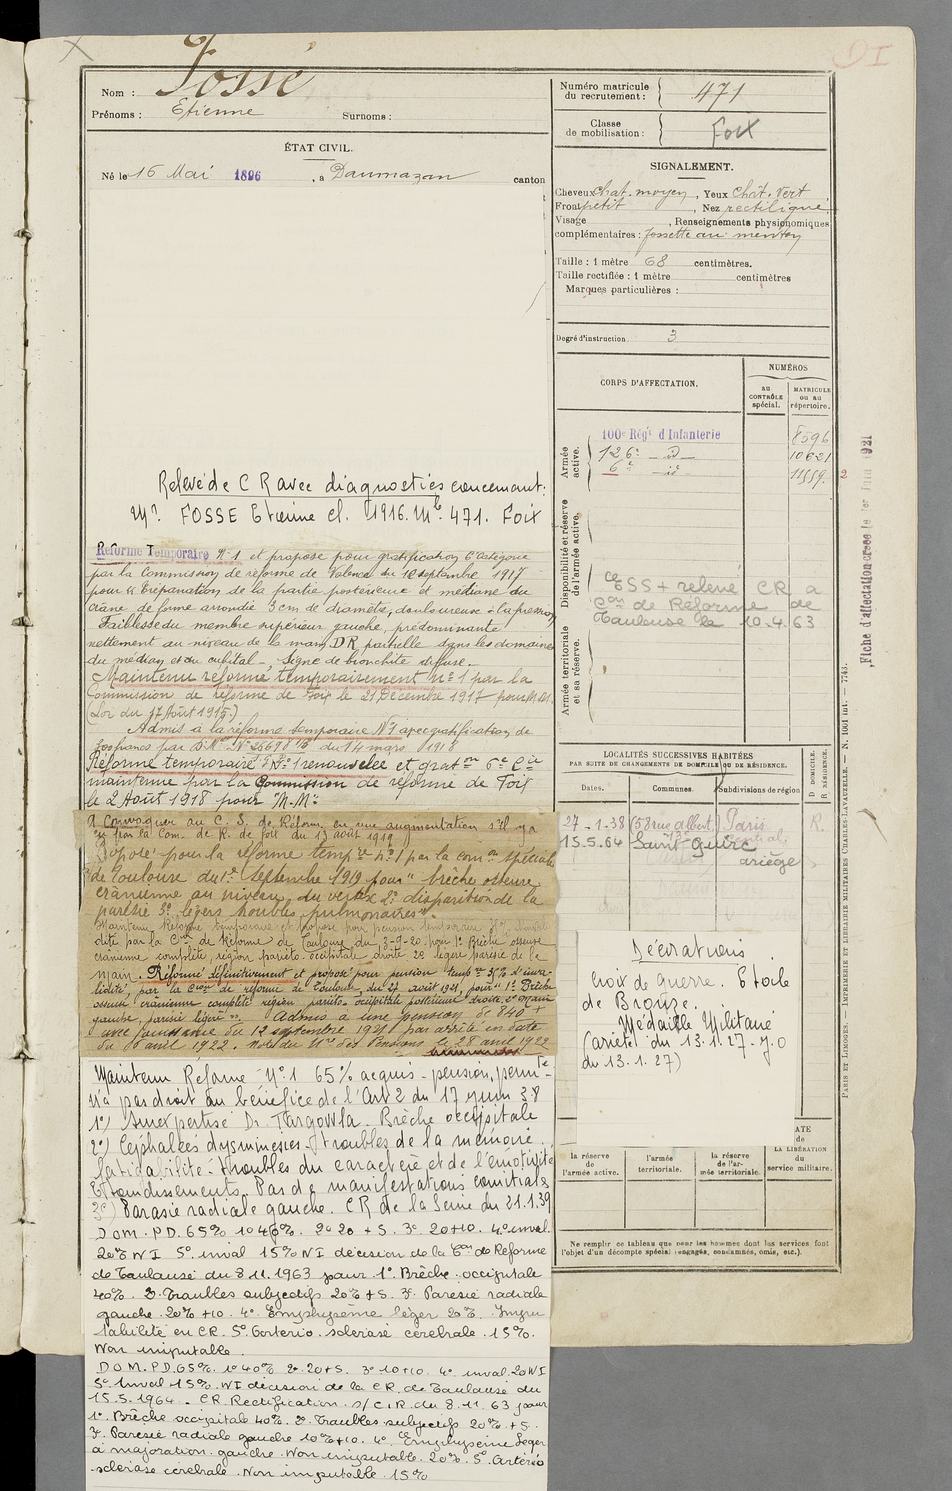 Nom : Fossé
Prénoms : Etienne Surnoms :
ÉTAT CIVIL.
Né le 16 Mai 1896, à Daumazan canton
Relevé de C R avec diagnostics concernant :
Mr. FOSSE Etienne cl. 1916. Mle 471. Foix
Réforme Temporaire N°1 et proposé pour gratification 6e catégorie
par la Commission de réforme de Valence du 12 septembre 1917
pour Trépanation de la partie postérieure et médiane du
crâne de forme arrondie 3 cm de diamètre, douloureuse à la pression
Faiblesse du membre supérieur gauche, prédominante
nettement au niveau de la main, DR partielle dans les domaines
du médian et du cubital - Signe de bronchite diffuse.
Maintenu réformé temporairement n°1 par la
Commission de réforme de Foix le 21 Décembre 1917 pour M.M.
(Loi du 17 Août 1915)
Admis à la réforme temporaire N°1 avec gratification de
francs par D.M. N° du 14 mars 1918
Réforme temporaire N°1 renouvelée et grat on 6e Cie
maintenue par la Commission de réforme de Foix
le 2 Août 1918 pour "M.M."
A convoquer au C. S. de Réforme en vue augmentation s'il y a
par la Com. de R. de Foix du 13 août 1919
Proposé pour la réforme temp re n°1 par la com on spéciale
de Toulouse du 1er Septembre 1919 pour "brèche osseuse
crânienne au niveau du vertex 2° disparition de la
parésie 3° légers troubles pulmonaires".
Maintenu Réforme temporaire et proposé pour pension temporaire 35%
dité par la Con de Réforme de Toulouse du 3-9-20 pour 1° Brèche osseuse
crânienne complète, région pariéto-occipitale droite 2° légère parésie de la
main. Réformé définitivement et proposé pour pension temp re 35% d'inva-
lidité, par la Con de réforme de Toulouse du 27 août 1921, pour "1° Brèche
osseuse crânienne complète région pariéto-occipitale postérieure droite, 2° Main
gauche, parésie légère". Admis à une pension de 840 f
avec jouissance du 12 septembre 1921 par arrêté en date
du 6 avril 1922. Note du Mre des Pensions le 28 avril 1922
Maintenu Réforme N°1 65% acquis - pension perm te
N'a pas droit au bénéfice de l'Art 2 du 17 juin 38
1°) Surexpertise Dr. Targowla. Brèche occipitale
2°) Céphalées dysmnésiques troubles de la mémoire.
fatigabilité : troubles du caractère et de l'émotivité
Etourdissements. Pas de manifestations comitiales
3°) Parésie radiale gauche. CR de la Seine du 21.1.39
DOM. P.D. 65% 1° 40%. 2° 20 + 5. 3° 20+10. 4° inval.
20% N I 5° inval 15% N I décision de la Con de Réforme
de Toulouse du 8 11. 1963 pour 1° Brèche occipitale
40%. 2° Troubles subjectifs 20% + 5. 3° Parésie radiale
gauche. 20% +10. 4° Emphysème léger 20%. Impu
tabilité en CR. 5° Cortério sclérose cérébrale. 15%.
Non imputable.
D O M. P.D. 65%. 1° 40% 2° 20+5. 3° 10+10. 4° inval. 20 N I
5° Inval 15% NI décision de la CR. de Toulouse du
15.5.1964. CR Rectification. s/ C.R. du 8.11.63 pour
1° Brèche occipitale 40%. 2° Troubles subjectifs 20% + 5.
3° Parésie radiale gauche 10%+10. 4° Emphysème léger
à majoration gauche. Non imputable. 20%. 5° Artério
sclérose cérébrale. Non imputable. 15%
DI
Numéro matricule du recrutement : 471
Classe de mobilisation : Foix
SIGNALEMENT.
Cheveux chat. moyen, Yeux Chât. Vert
Front petit, Nez rectiligne
Visage , Renseignements physionomiques
complémentaires : fossette au menton
Taille : 1 mètre 68 centimètres.
Taille rectifiée : 1 mètre centimètres
Marques particulières :
Degré d'instruction. 3
CORPS D'AFFECTATION.
NUMÉROS
AU CONTRÔLE spécial.
MATRICULE OU AU répertoire.
Armée active.
100e Régt d'Infanterie 8596
126e - id - 10621
6e - id - 11559. 2
Disponibilité et réserve de l'armée active.
ESS + relevé CR a
Con de Réforme de
Toulouse le 10.4.63
Armée territoriale et sa réserve.
LOCALITÉS SUCCESSIVES HABITÉES
PAR SUITE DE CHANGEMENTS DE DOMICILE OU DE RÉSIDENCE.
Dates. Communes. Subdivisions de région D DOMICILE. R RÉSIDENCE.
27-1-38 (58 rue Albert, Paris R.
15.5.64 Saint-Quirc
ariège
Décorations
Croix de guerre. Etoile
de Bronze.
Médaille Militaire
(arrêté du 13.1.27. J.O
du 13.1.27)
DATE DE LA LIBÉRATION du service militaire.
la réserve de l'armée active.
l'armée territoriale.
la réserve de l'armée territoriale.
Ne remplir ce tableau que pour les hommes dont les services font
l'objet d'un décompte spécial (engagés, condamnés, omis, etc.).
Fiche d'affectation créée le 1er Juin 1921
PARIS ET LIMOGES. — IMPRIMERIE ET LIBRAIRIE MILITAIRES CHARLES-LAVAUZELLE. — N. 1001 int. — 7743.